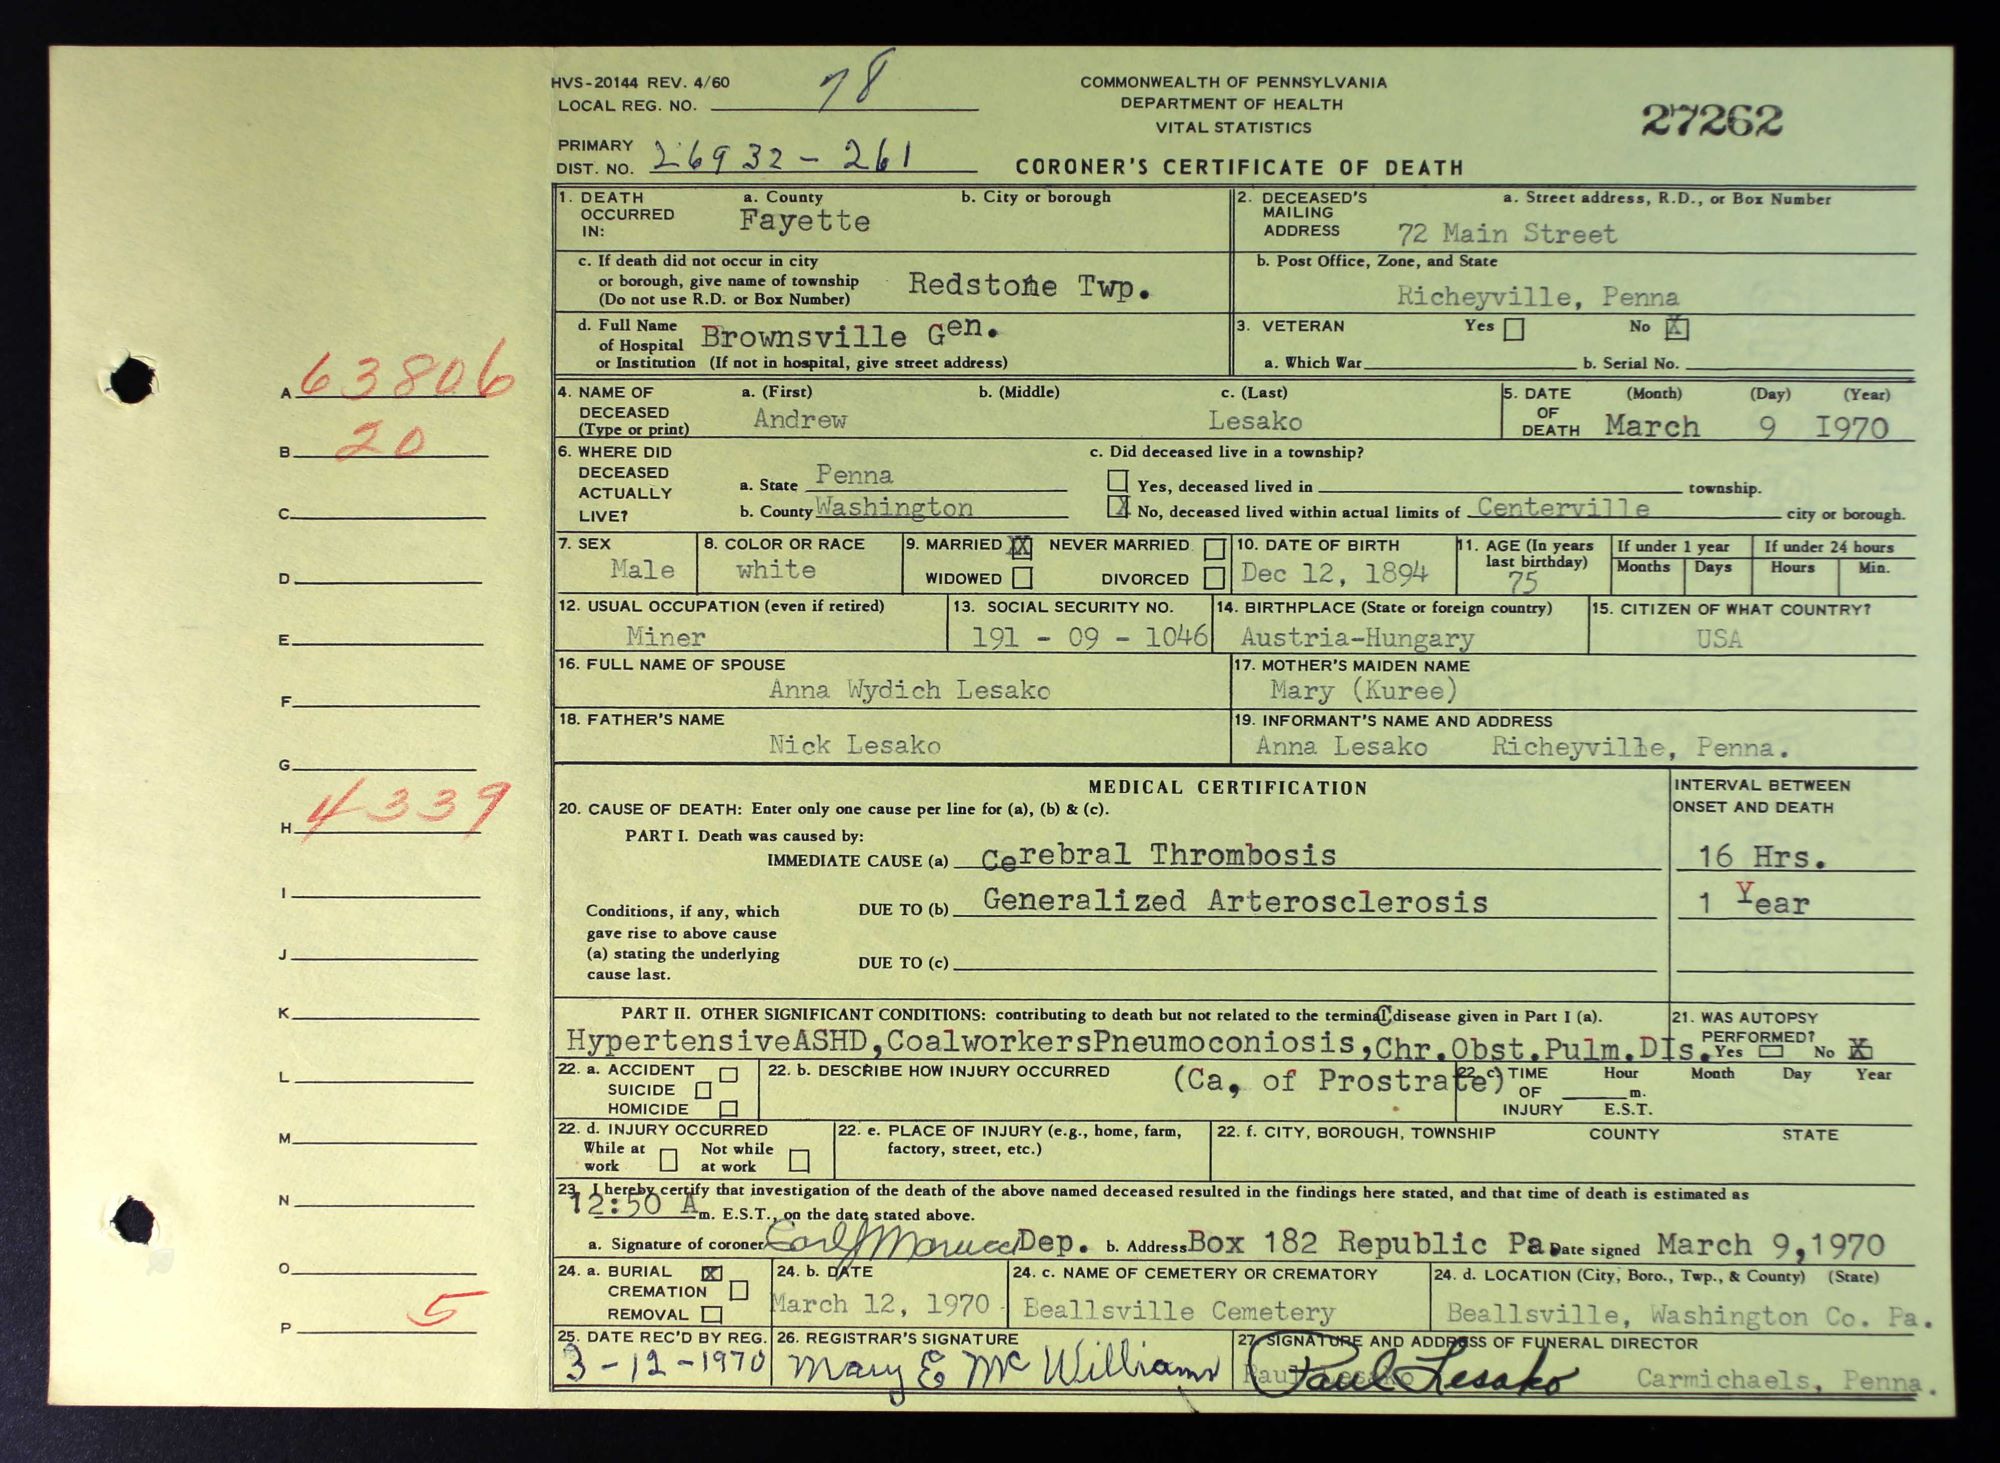 HVS-20144 REV. 4/60
LOCAL REG. NO. 78
PRIMARY
DIST. NO. 26932-261
COMMONWEALTH OF PENNSYLVANIA
DEPARTMENT OF HEALTH
VITAL STATISTICS
CORONER'S CERTIFICATE OF DEATH
27262
1. DEATH OCCURRED IN: a. County b. City or borough
Fayette
c. If death did not occur in city
or borough, give name of township
(Do not use R.D. or Box Number) Redstone Twp.
d. Full Name
of Hospital Brownsville Gen.
or Institution (If not in hospital, give street address)
2. DECEASED'S MAILING ADDRESS a. Street address, R.D., or Box Number
72 Main Street
b. Post Office, Zone, and State
Richeyville, Penna
3. VETERAN Yes No X
a. Which War b. Serial No.
4. NAME OF DECEASED (Type or print) a. (First) b. (Middle) c. (Last)
Andrew Lesako
5. DATE OF DEATH (Month) (Day) (Year)
March 9 I970
6. WHERE DID DECEASED ACTUALLY LIVE?
a. State Penna
b. County Washington
c. Did deceased live in a township?
Yes, deceased lived in township.
X No, deceased lived within actual limits of Centerville city or borough.
7. SEX
Male
8. COLOR OR RACE
white
9. MARRIED XX NEVER MARRIED
WIDOWED DIVORCED
10. DATE OF BIRTH
Dec 12, 1894
11. AGE (In years
last birthday)
75
If under 1 year If under 24 hours
Months Days Hours Min.
12. USUAL OCCUPATION (even if retired)
Miner
13. SOCIAL SECURITY NO.
191 - 09 - 1046
14. BIRTHPLACE (State or foreign country)
Austria-Hungary
15. CITIZEN OF WHAT COUNTRY?
USA
16. FULL NAME OF SPOUSE
Anna Wydich Lesako
17. MOTHER'S MAIDEN NAME
Mary (Kuree)
18. FATHER'S NAME
Nick Lesako
19. INFORMANT'S NAME AND ADDRESS
Anna Lesako Richeyville, Penna.
MEDICAL CERTIFICATION
INTERVAL BETWEEN
ONSET AND DEATH
20. CAUSE OF DEATH: Enter only one cause per line for (a), (b) & (c).
PART I. Death was caused by:
IMMEDIATE CAUSE (a) Cerebral Thrombosis 16 Hrs.
DUE TO (b) Generalized Arterosclerosis 1 Year
Conditions, if any, which
gave rise to above cause
(a) stating the underlying
cause last.
DUE TO (c)
PART II. OTHER SIGNIFICANT CONDITIONS: contributing to death but not related to the terminal disease given in Part I (a).
HypertensiveASHD,CoalworkersPneumoconiosis,Chr.Obst.Pulm.DIs.
(Ca, of Prostrate)
21. WAS AUTOPSY
PERFORMED?
Yes No X
22. a. ACCIDENT
SUICIDE
HOMICIDE
22. b. DESCRIBE HOW INJURY OCCURRED
22. c. TIME OF INJURY Hour Month Day Year
m.
E.S.T.
22. d. INJURY OCCURRED
While at work Not while at work
22. e. PLACE OF INJURY (e.g., home, farm,
factory, street, etc.)
22. f. CITY, BOROUGH, TOWNSHIP COUNTY STATE
23. I hereby certify that investigation of the death of the above named deceased resulted in the findings here stated, and that time of death is estimated as
12:50 A m. E.S.T., on the date stated above.
a. Signature of coroner Dep. b. Address Box 182 Republic Pa. Date signed March 9,1970
24. a. BURIAL X
CREMATION
REMOVAL
24. b. DATE
March 12, 1970
24. c. NAME OF CEMETERY OR CREMATORY
Beallsville Cemetery
24. d. LOCATION (City, Boro., Twp., & County) (State)
Beallsville, Washington Co. Pa.
25. DATE REC'D BY REG.
3-12-1970
26. REGISTRAR'S SIGNATURE
Mary E McWilliams
27. SIGNATURE AND ADDRESS OF FUNERAL DIRECTOR
Paul Lesako
Paul Lesako Carmichaels, Penna.
A 63806
B 20
C
D
E
F
G
H 4339
I
J
K
L
M
N
O
P 5